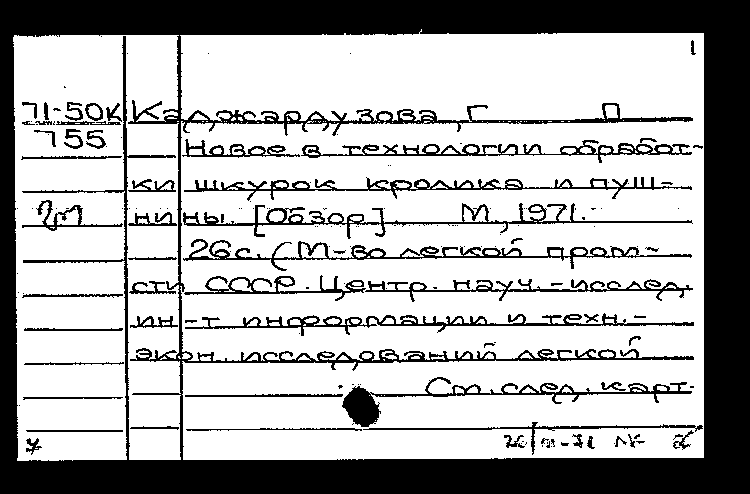 1
71-50К Каджардузова, Г П
755 Новое в технологии обработ-
ки шкурок кролика и пуш-
нины. [Обзор]. М., 1971.-
26с. (М-во легкой пром-
сти СССР. Центр. науч.-исслед.
ин-т информации и техн.-
экон. исследований легкой
См. след. карт.